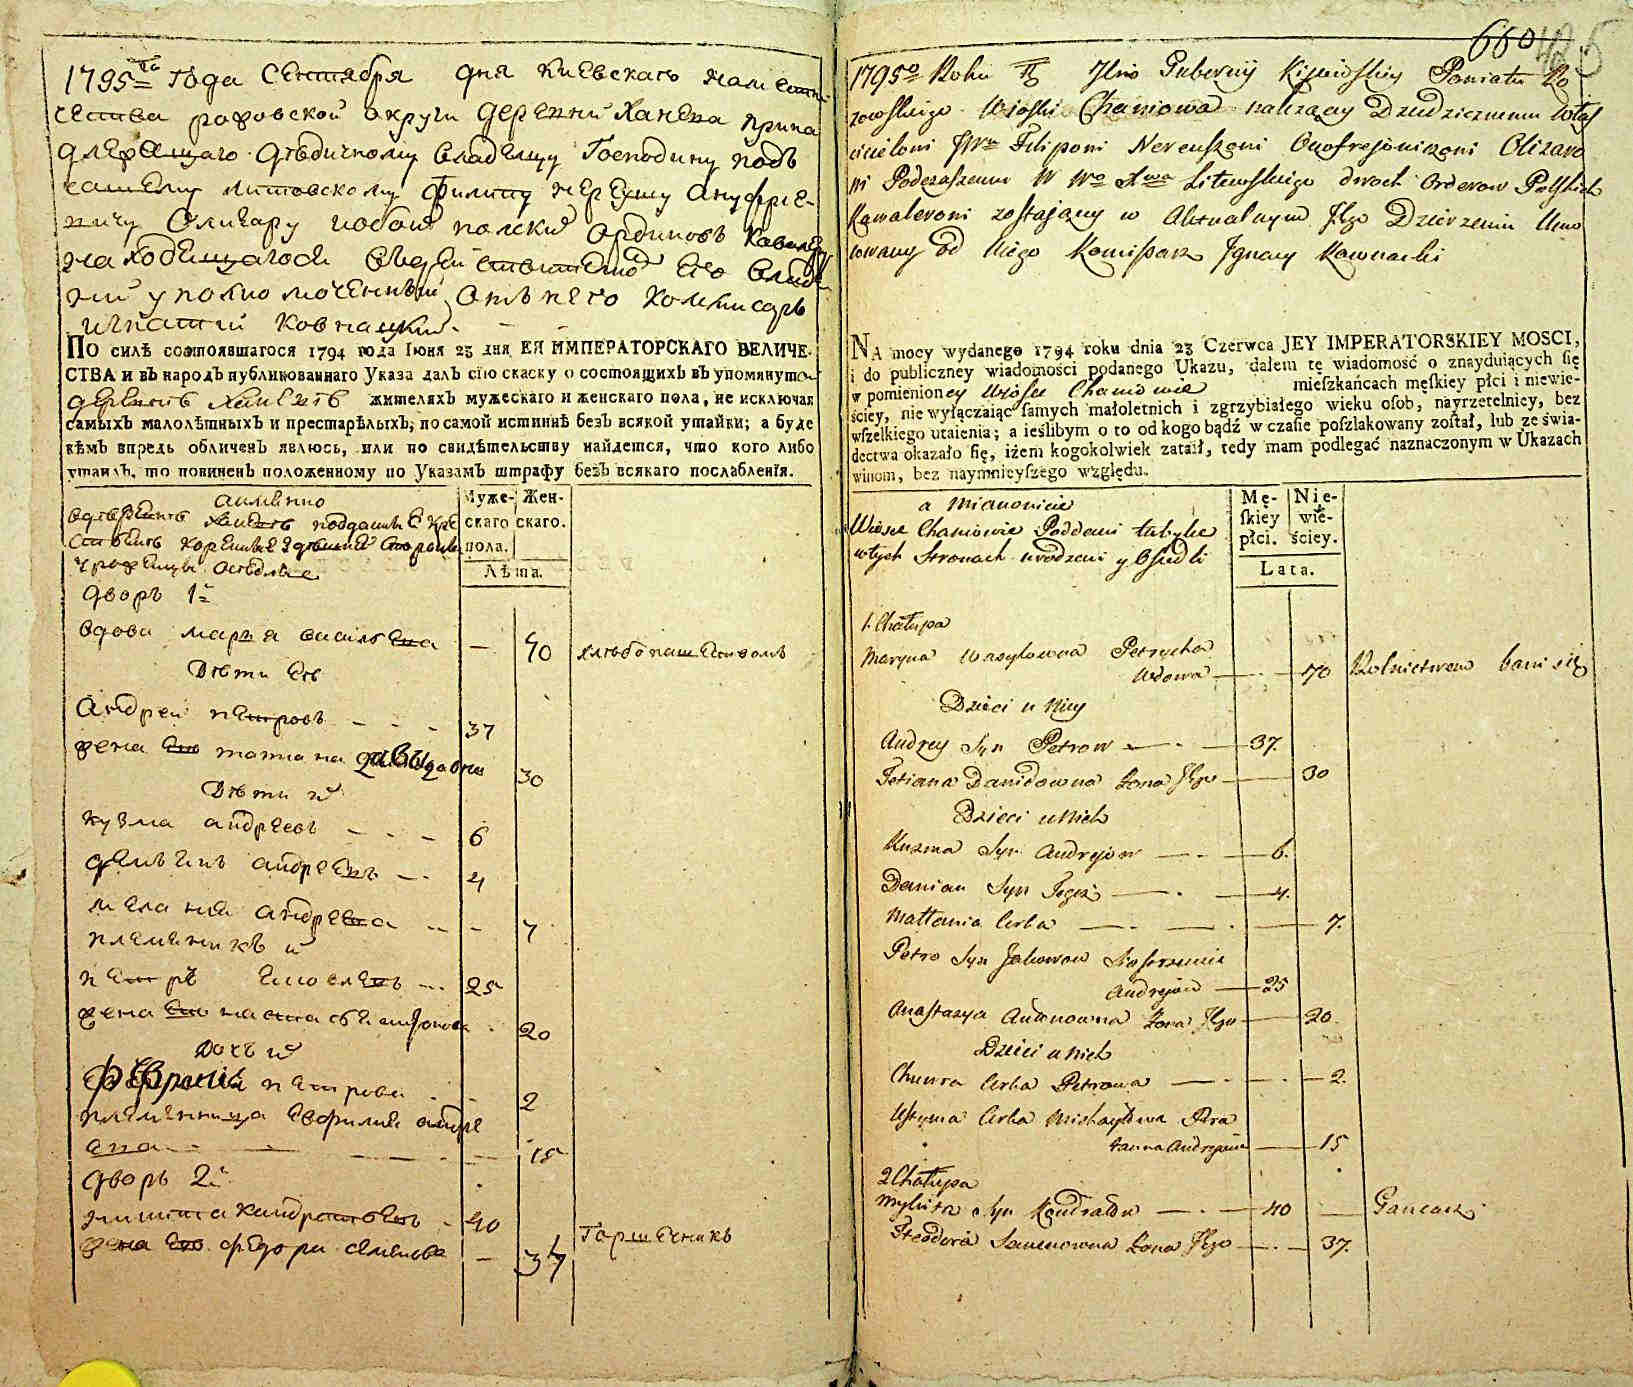 1795го года Сентября дня Киевскаго наместни
чества рафовской округи деревни Ханева прина
длежащаго дедичному владелцу Господину подъ
чашему литовскому Филипу Нереушу Ануфрие-
вичу Олизару обоих полских ординовъ кавалеру
находящагося в действительно его владе
нии уполномоченный отъ него коммисаръ
игнатий Ковнацкий
ПО силѣ состоявшагося 1794 года Іюня 23 дня ЕЯ ИМПЕРАТОРСКАГО ВЕЛИЧЕ-
СТВА и въ народъ публикованнаго Указа далъ сію скаску о состоящихъ въ упомянутой
деревне Ханеве жителяхъ мужескаго и женскаго пола, не исключая
самыхъ малолѣтныхъ и престарѣлыхъ, по самой истиннѣ безъ всякой утайки; а буде
кѣмъ впредь обличенъ явлюсь, или по свидѣтельству найдется, что кого либо
утаилъ, то повиненъ положенному по Указамъ штрафу безъ всякаго послабленія.
а имянно
Муже- Жен-
скаго скаго.
пола.
Лѣта.
дворъ 1й
вдова марья василева — 70 хлебопашеством
Дети ее
Андрей петровъ 37
жена его татиана давидавна 30
Дети их
кузма андреевъ 6
демьянъ андреевъ 4
мелания андреева 7
племеникъ их
петръ 25
жена его настасья 20
Дочь их
петрова 2
племенница
15
дворъ 2й
микита кандратьевъ 40 Горшечникъ
жена его федора семенова — 37
660
1795o Roku Gubernij Kijowskiey Powiatu Ro
zowskiego Wioski Chaniowa nalezący Dziedzicznemu własc
icielowi JWu Filiponi Nereuszoni Onofrejowiczoni Olizaro
wi Podczaszemu W Wo Xwa Litewskiego dwoch Orderow Polskich
Kawaleroni zostający w aktualnym Jego Dzierzeniu Umo
cowany od Niego Komisarz Ignacy Kownacki
NA mocy wydanego 1794 roku dnia 23 Czerwca JEY IMPERATORSKIEY MOSCI,
i do publiczney wiadomości podanego Ukazu, dałem tę wiadomość o znayduiących się
w pomienioney Wiosce Chaniowie mieszkańcach męskiey płci i niewie-
ściey, nie wyłączaiąc samych małoletnich i zgrzybiałego wieku osob, nayrzetelniey, bez
wszelkiego utaienia; a ieślibym o to od kogo bądź w czasie poszlakowany został, lub ze świa-
dectwa okazało się, iżem kogokolwiek zataił, tedy mam podlegać naznaczonym w Ukazach
winom, bez naymnieyszego względu.
a Mianowicie
Wiosce Chaniowie Poddani tutyłce
w tych Stronach urodzeni y Osiedli
Mę- Nie-
skiey wie-
płci. ściey.
Lata.
1. Chałupa
Maryna Wasylowna Petrycha
Wdowa — 70 Rolnictwem bawi się
Dzieci u Niey
Andrey Syn Petrow — 37.
Tetiana Danidowna Zona Jego — 30
Dzieci u Nich
Kuzma Syn Andrejow — 6.
Damian Syn Tegoż — 4.
Małania Corka — 7.
Petro Syn Jakowow Siostrzeniec
Andrejow — 25
Anastazya Antonowna Zona Jego — 20
Dzieci u Nich
Corka Petrowa — 2.
Ustyma Corka Michayłowa
Andrejowa — 15
2 Chałupa
Mykita Syn Kondratow — 40 — Gancarz
Fteodora Semenowna Zona Jego — 37.